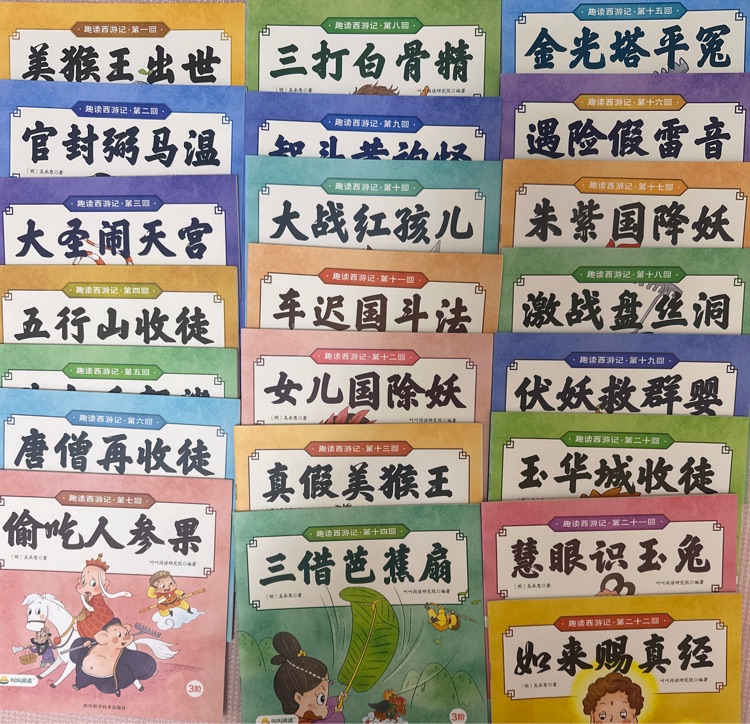 趣读西游记·第一回
美猴王出世
趣读西游记·第二回
官封弼马温
[明]吴承恩◎著
趣读西游记·第三回
大圣闹天宫
趣读西游记·第四回
五行山收徒
趣读西游记·第五回
趣读西游记·第六回
唐僧再收徒
趣读西游记·第七回
偷吃人参果
[明]吴承恩◎著
叫叫阅读研究院◎编著
叫叫阅读
3阶
四川科学技术出版社
趣读西游记·第八回
三打白骨精
[明]吴承恩◎著
叫叫阅读研究院◎编著
趣读西游记·第九回
智斗黄袍怪
趣读西游记·第十回
大战红孩儿
趣读西游记·第十一回
车迟国斗法
趣读西游记·第十二回
女儿国除妖
[明]吴承恩◎著
叫叫阅读研究院◎编著
趣读西游记·第十三回
真假美猴王
趣读西游记·第十四回
三借芭蕉扇
[明]吴承恩◎著
叫叫阅读研究院◎编著
叫叫阅读
3阶
趣读西游记·第十五回
金光塔平冤
趣读西游记·第十六回
遇险假雷音
趣读西游记·第十七回
朱紫国降妖
趣读西游记·第十八回
激战盘丝洞
趣读西游记·第十九回
伏妖救群婴
趣读西游记·第二十回
玉华城收徒
趣读西游记·第二十一回
慧眼识玉兔
[明]吴承恩◎著
叫叫阅读研究院◎编著
趣读西游记·第二十二回
如来赐真经
[明]吴承恩◎著
叫叫阅读研究院◎编著